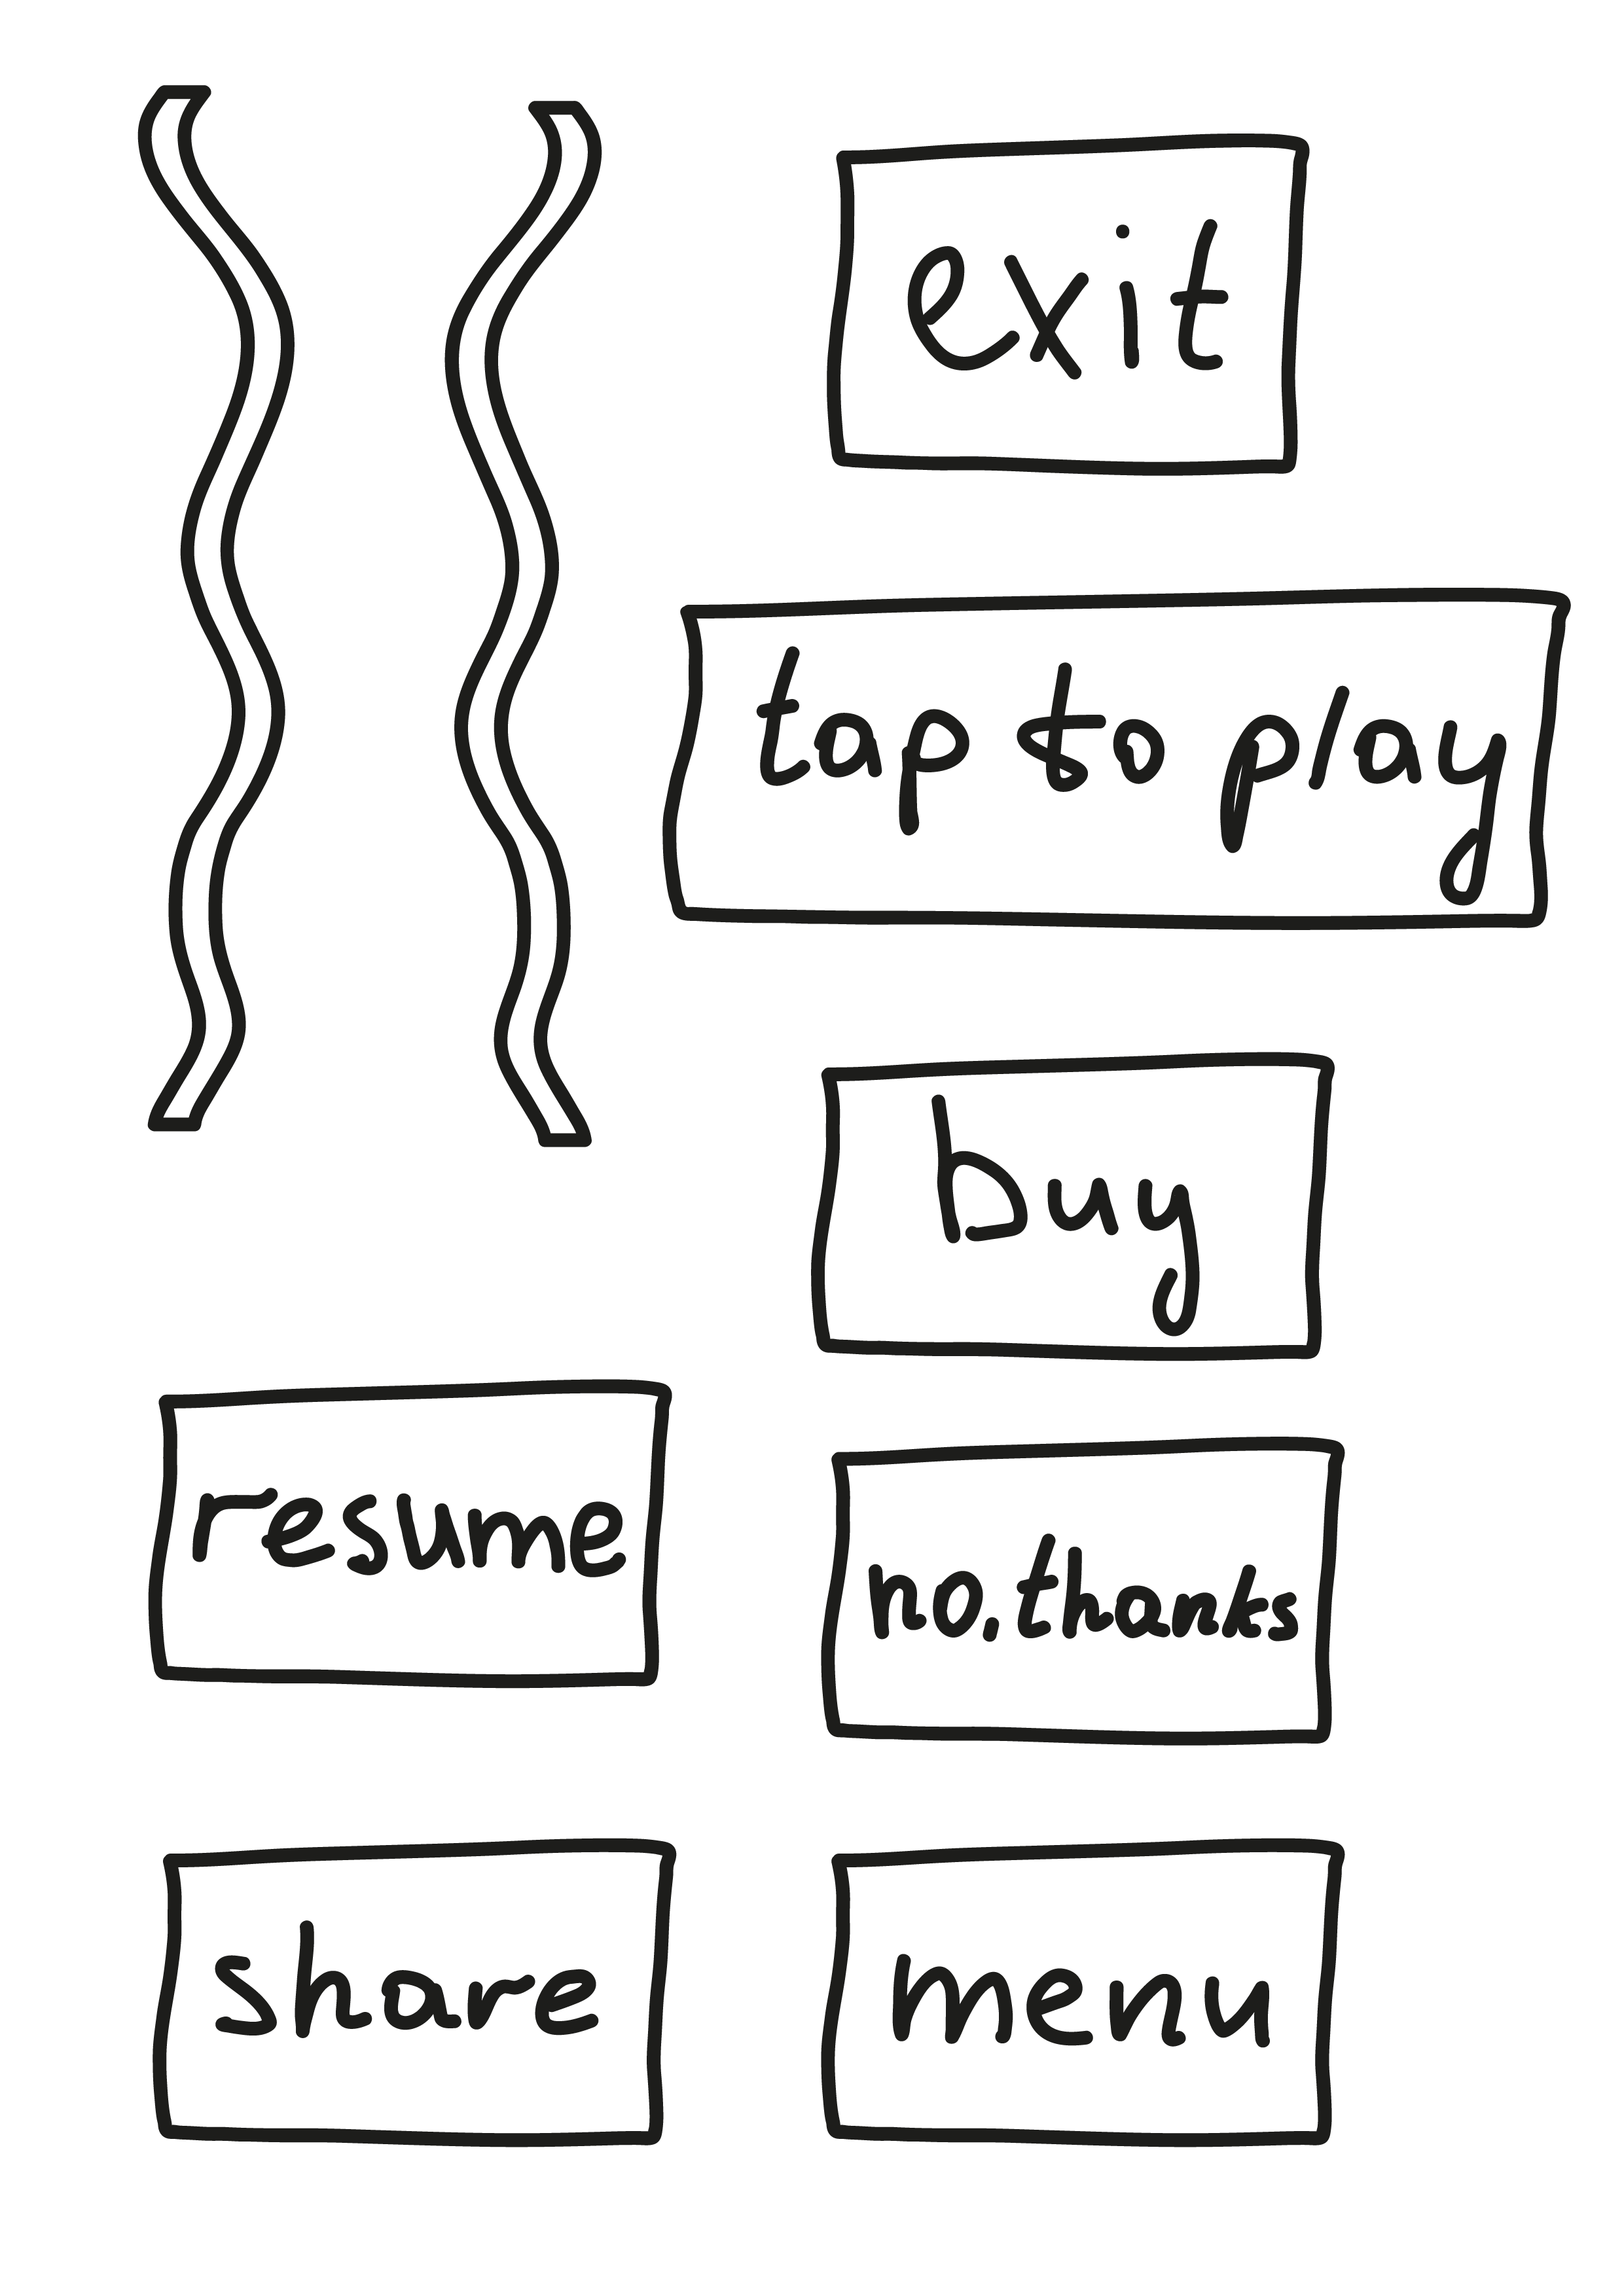 exit
tap to play
buy
resume
no, thanks
share
menu